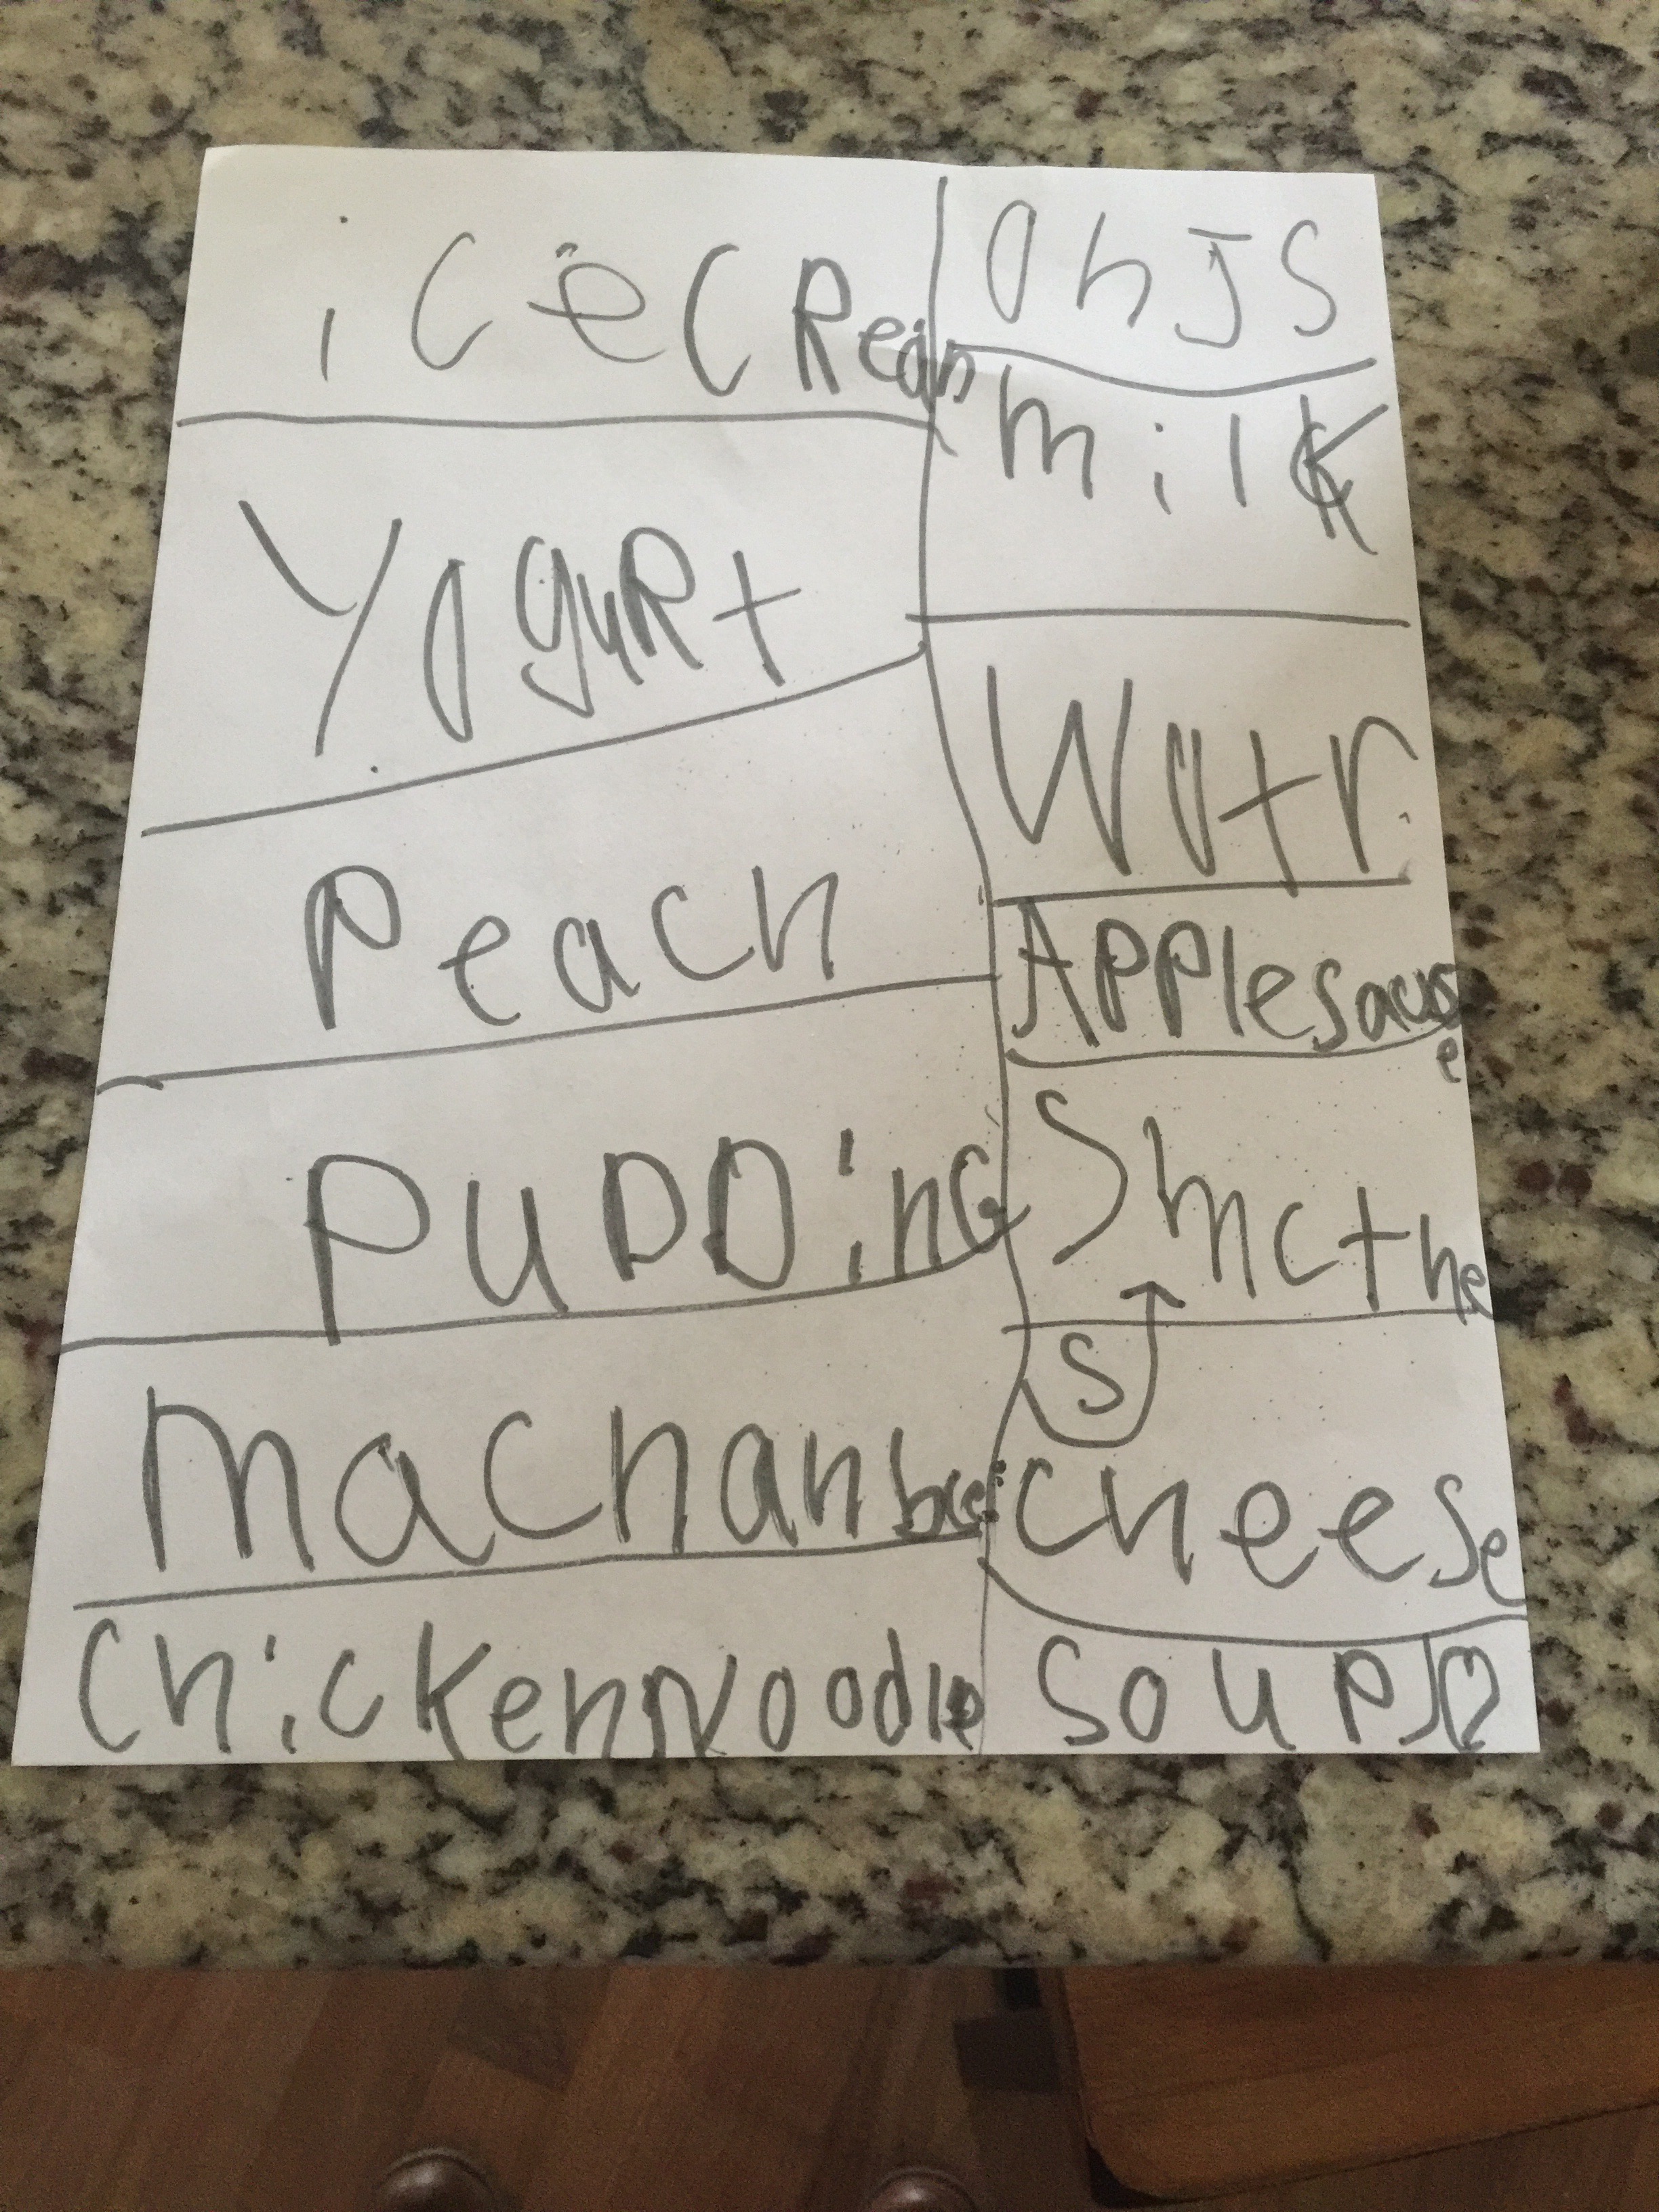 iceCReam
YoguRt
Peach
PUDDinG
Machan
ChickenNoodle
OhJS
milK
Watr
APPlesauce
Smcthe
S
cheese
SouP